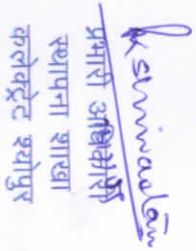 प्रभारी अधिकारी
स्थापना शाखा
कलेक्ट्रेट श्योपुर